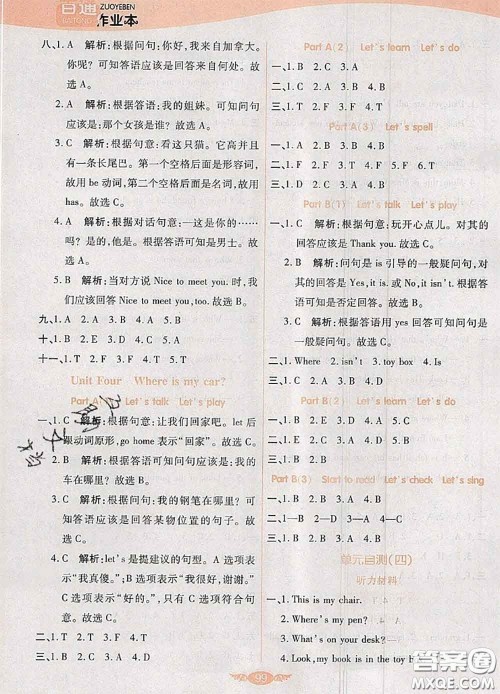 百通
ZUOYEBEN
作业本
八、1. A 解析:根据问句:你好,我来自加拿大。
你呢?可知答语应该是回答来自何处。故
选A。
2. A 解析:根据答语:我的姐妹。可知问句
应该是:那个女孩是谁?故选A。
3. C 解析:根据句意:看这只猫。它高并且
有一条长尾巴。第一个空格后面是形容词,
故用be动词,第二个空格后面是名词,故用
has。故选C。
4. A 解析:根据对话句意:—这是你的……
吗?—是的,他是。可知答语是男士。故
选A。
5. B 解析:当对方说Nice to meet you.时,我
们应该回答Nice to meet you,too.故选B。
九、1. A 2. C 3. D 4. A 5. B
十、1. B 2. C 3. A 4. D
十一、1. T 2. F 3. F 4. T 5. F
Unit Four Where is my car?
Part A(1) Let's talk Let's play
一、1. C 解析:根据句意:让我们回家吧。let后
跟动词原形,go home表示“回家”。故选C。
2. B 解析:根据答语可知问句应该是:我的
车在哪里?故选B。
3. C 解析:根据问句:我的钢笔在哪里?可
知答语应该是回答某物位置的句子。故
选C。
4. C 解析:let's是提建议的句型。A选项表
示“我真傻。”;B选项表示“我很好,谢谢。”
C选项表示“好的。”,只有C选项符合题
意。故选C。
二、1. T 2. F 3. T 4. T
三、1. B 2. A 3. D 4. C
Part A(2) Let's learn Let's do
一、1. C 2. C 3. A
二、1. B 2. C 3. A 4. D
Part A(3) Let's spell
一、1. F 2. T 3. F 4. T 5. T
二、1. B 2. C 3. A 4. D
Part B(1) Let's talk Let's play
一、1. C 解析:根据句意:玩开心点儿。对其的
回答应该是Thank you.故选C。
2. B 解析:问句是is引导的一般疑问句,对
其的回答是Yes, it is.或No, it isn't.根据答
语可知是否定的回答。故选B。
3. C 解析:根据答语用yes回答可知问句是
一般疑问句。故选C。
二、1. Where 2. isn't 3. toy box 4. Look
三、1. B 2. D 3. A 4. C
Part B(2) Let's learn Let's do
一、1. D 2. B 3. A 4. C 5. E
二、1. B 2. C 3. A 4. B
Part B(3) Start to read Let's check Let's sing
一、1. B 2. A 3. D 4. B
二、1—C 2—D 3—A 4—B
三、1. B 2. A 3. B
单元自测(四)
听力材料
一、1. This is my chair.
2. Where's my pen?
3. What's on your desk?
4. Look,my book is in the toy
93
答案圈
MXQE.COM